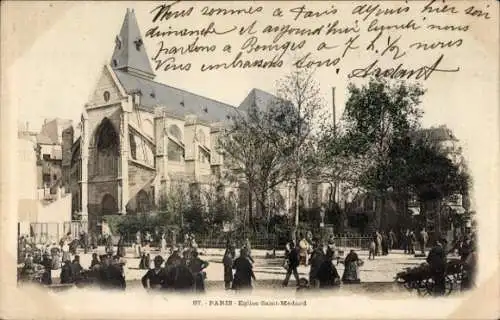 Nous sommes à Paris depuis hier soir
dimanche et aujourd'hui après-midi nous
partons à Bourges à 7 h Nous
vous embrassons tous
87. PARIS - Eglise Saint-Médard